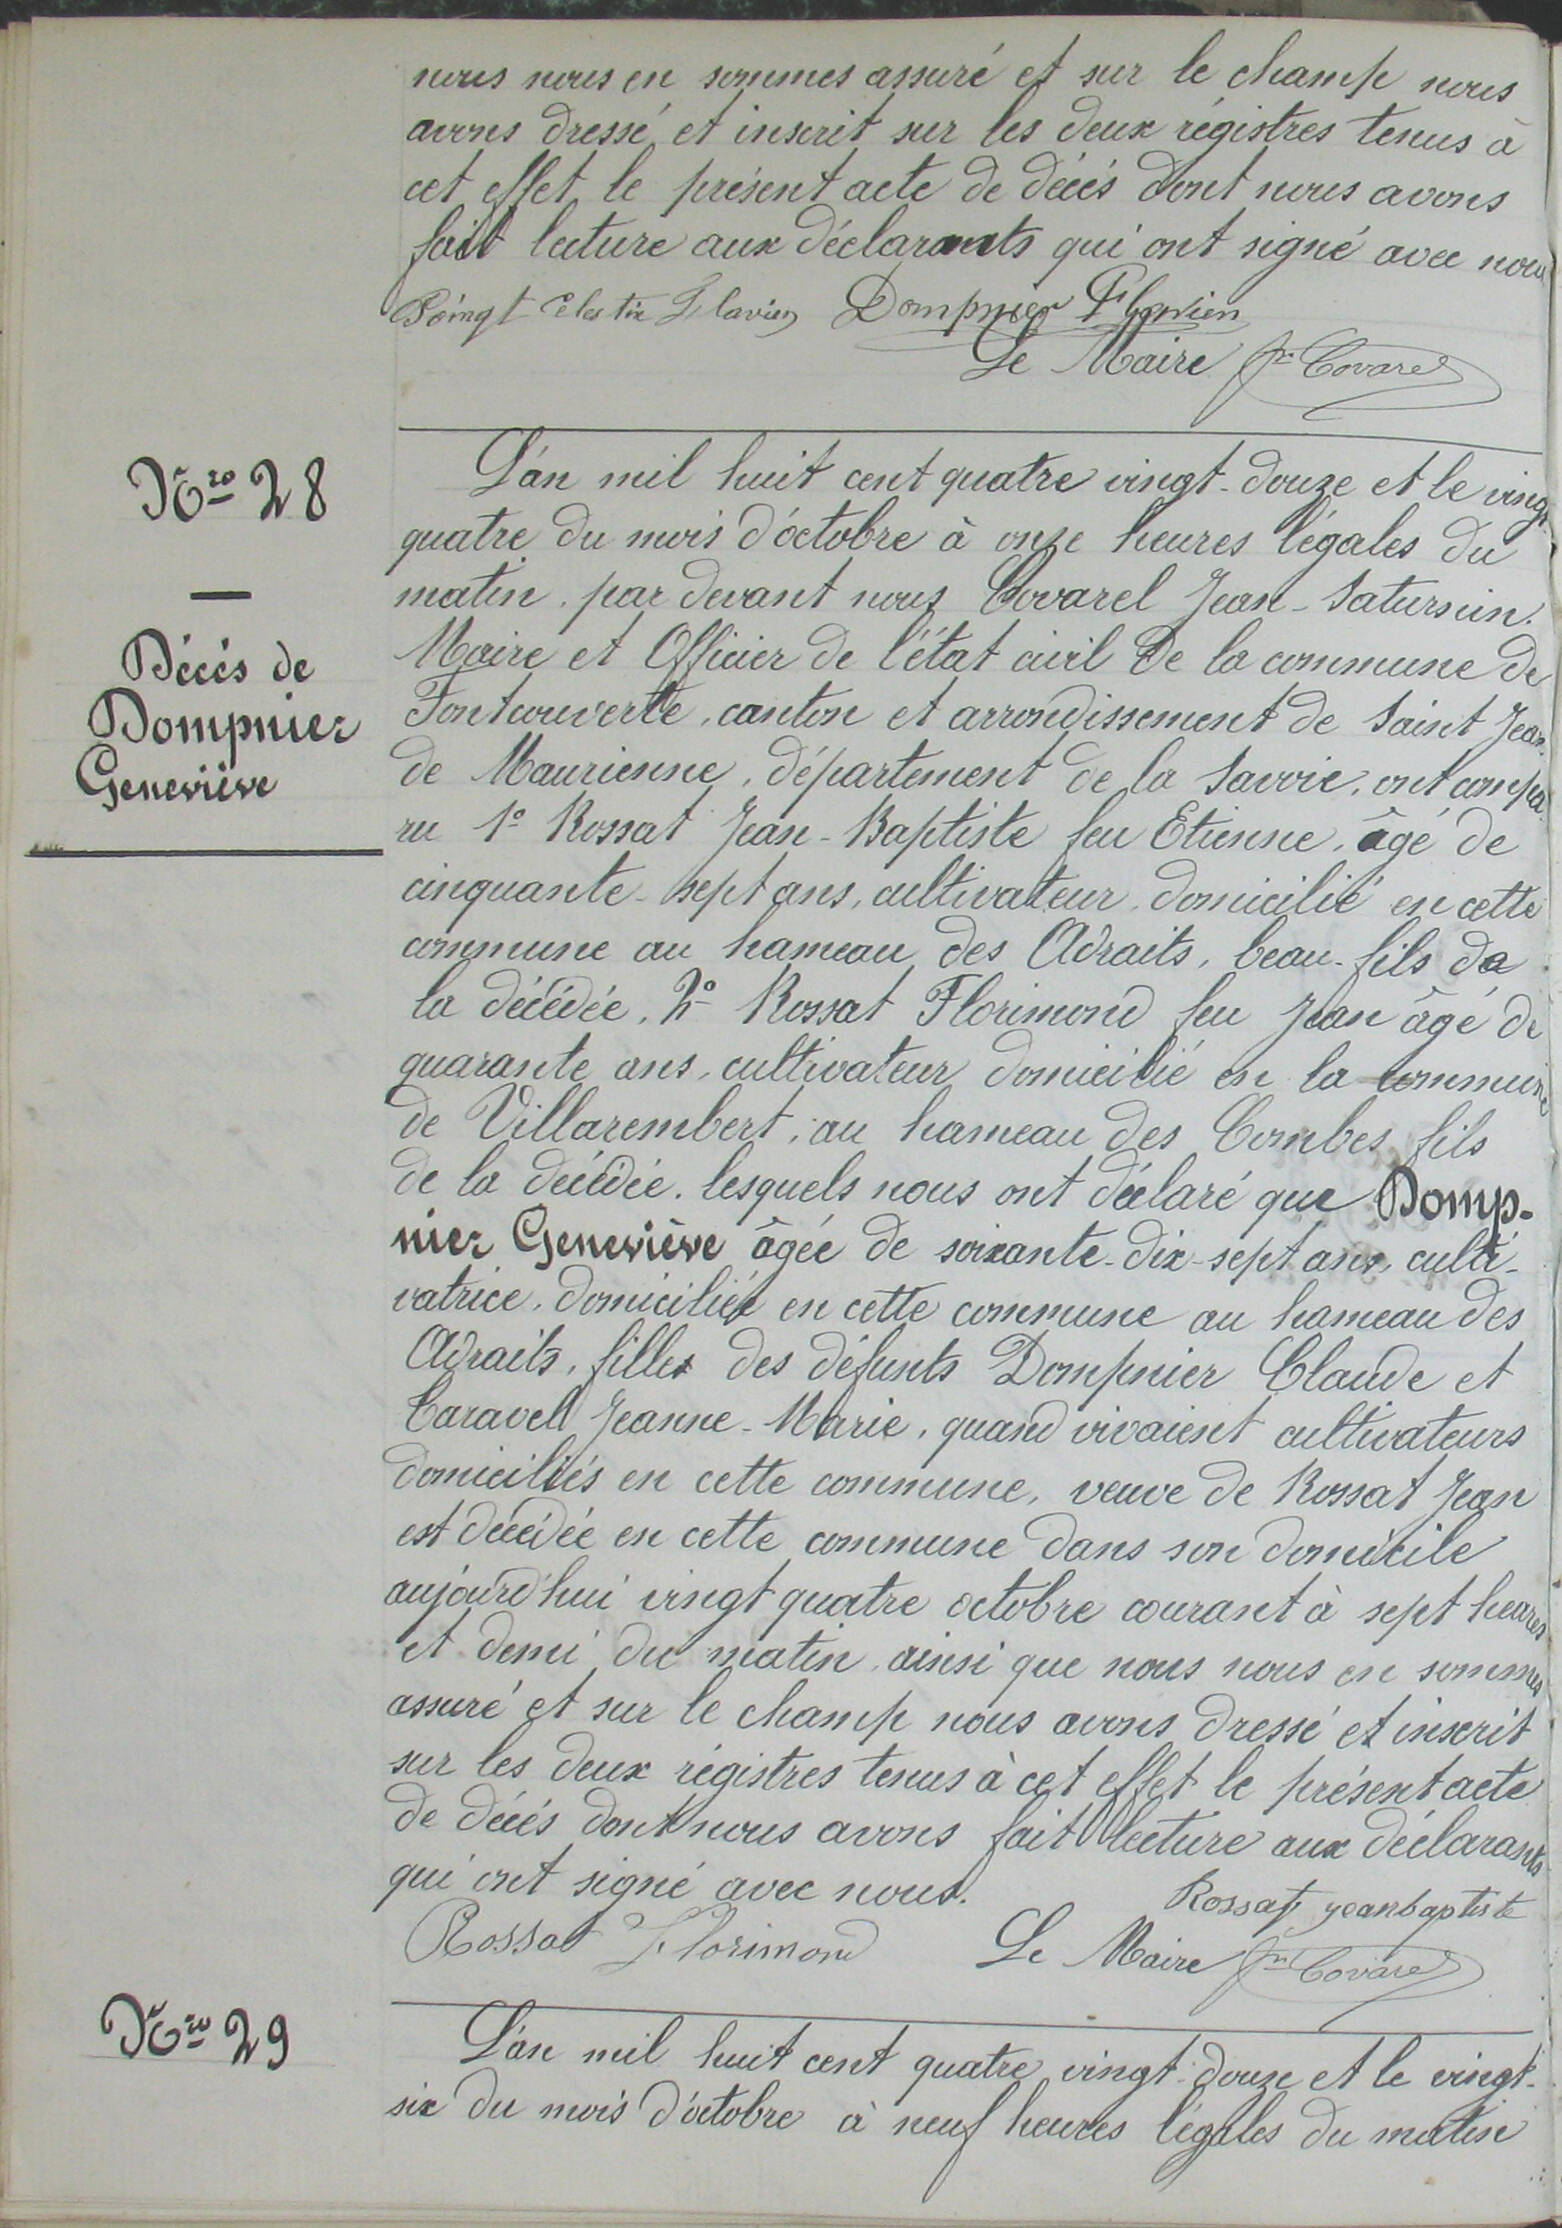 nous nous en sommes assuré et sur le champ nous
avons dressé et inscrit sur les deux régistres tenus à
cet effet le présent acte de décès dont nous avons
fait lecture aux déclarants qui ont signé avec nous
Poingt Celestin Flavien Dompnier Flavien
Le Maire Jn Covarel
Nro 28
Décès de
Dompnier
Geneviève
L'an mil huit cent quatre vingt-douze et le vingt-
quatre du mois d'octobre à onze heures légales du
matin, par devant nous Covarel Jean-Saturnin.
Maire et Officier de l'état civil De la commune de
Fontcouverte, canton et arrondissement de Saint Jean-
de Maurienne, département de la Savoie, ont compa-
ru 1o Rossat Jean-Baptiste feu Etienne, âgé de
cinquante-sept ans, cultivateur, domicilié en cette
commune au hameau des Adraits, beau-fils de
la décédée, 2o Rossat Florimond feu Jean âgé de
quarante ans, cultivateur domicilié en la commune
de Villarembert, au hameau des Combes fils
de la décédée, lesquels nous ont déclaré que Domp-
nier Geneviève âgée de soixante-dix-sept ans, culti-
vatrice, domiciliée en cette commune au hameau des
Adraits, fille des défunts Dompnier Claude et
Caravel Jeanne-Marie, quand vivaient cultivateurs
domiciliés en cette commune, veuve de Rossat Jean
est décédée en cette commune dans son domicile
aujourd'hui vingt quatre octobre courant à sept heures
et demi du matin, ainsi que nous nous en sommes
assuré et sur le champ nous avons dressé et inscrit
sur les deux régistres tenus à cet effet le présent acte
de décès dont nous avons fait lecture aux déclarants
qui ont signé avec nous.
Rossat jeanbaptiste
Rossat Florimond Le Maire Jn Covarel
Nro 29
L'an mil huit cent quatre vingt-douze et le vingt-
six du mois d'octobre à neuf heures légales du matin